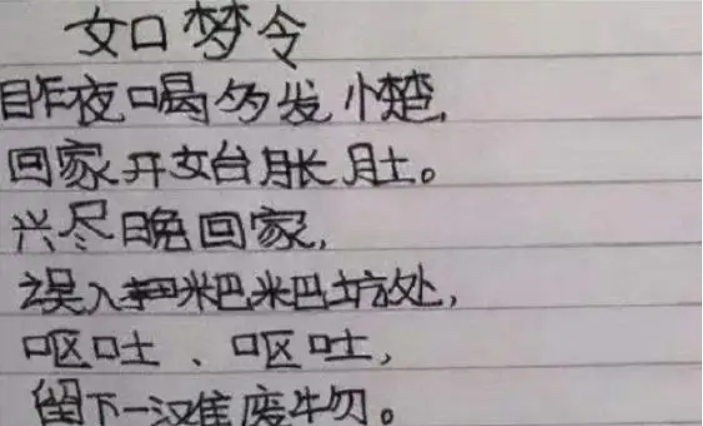 如梦令
昨夜喝多发憷,
回家开始胀肚。
兴尽晚回家,
误入粑粑坊处,
呕吐、呕吐,
留下一滩废物。